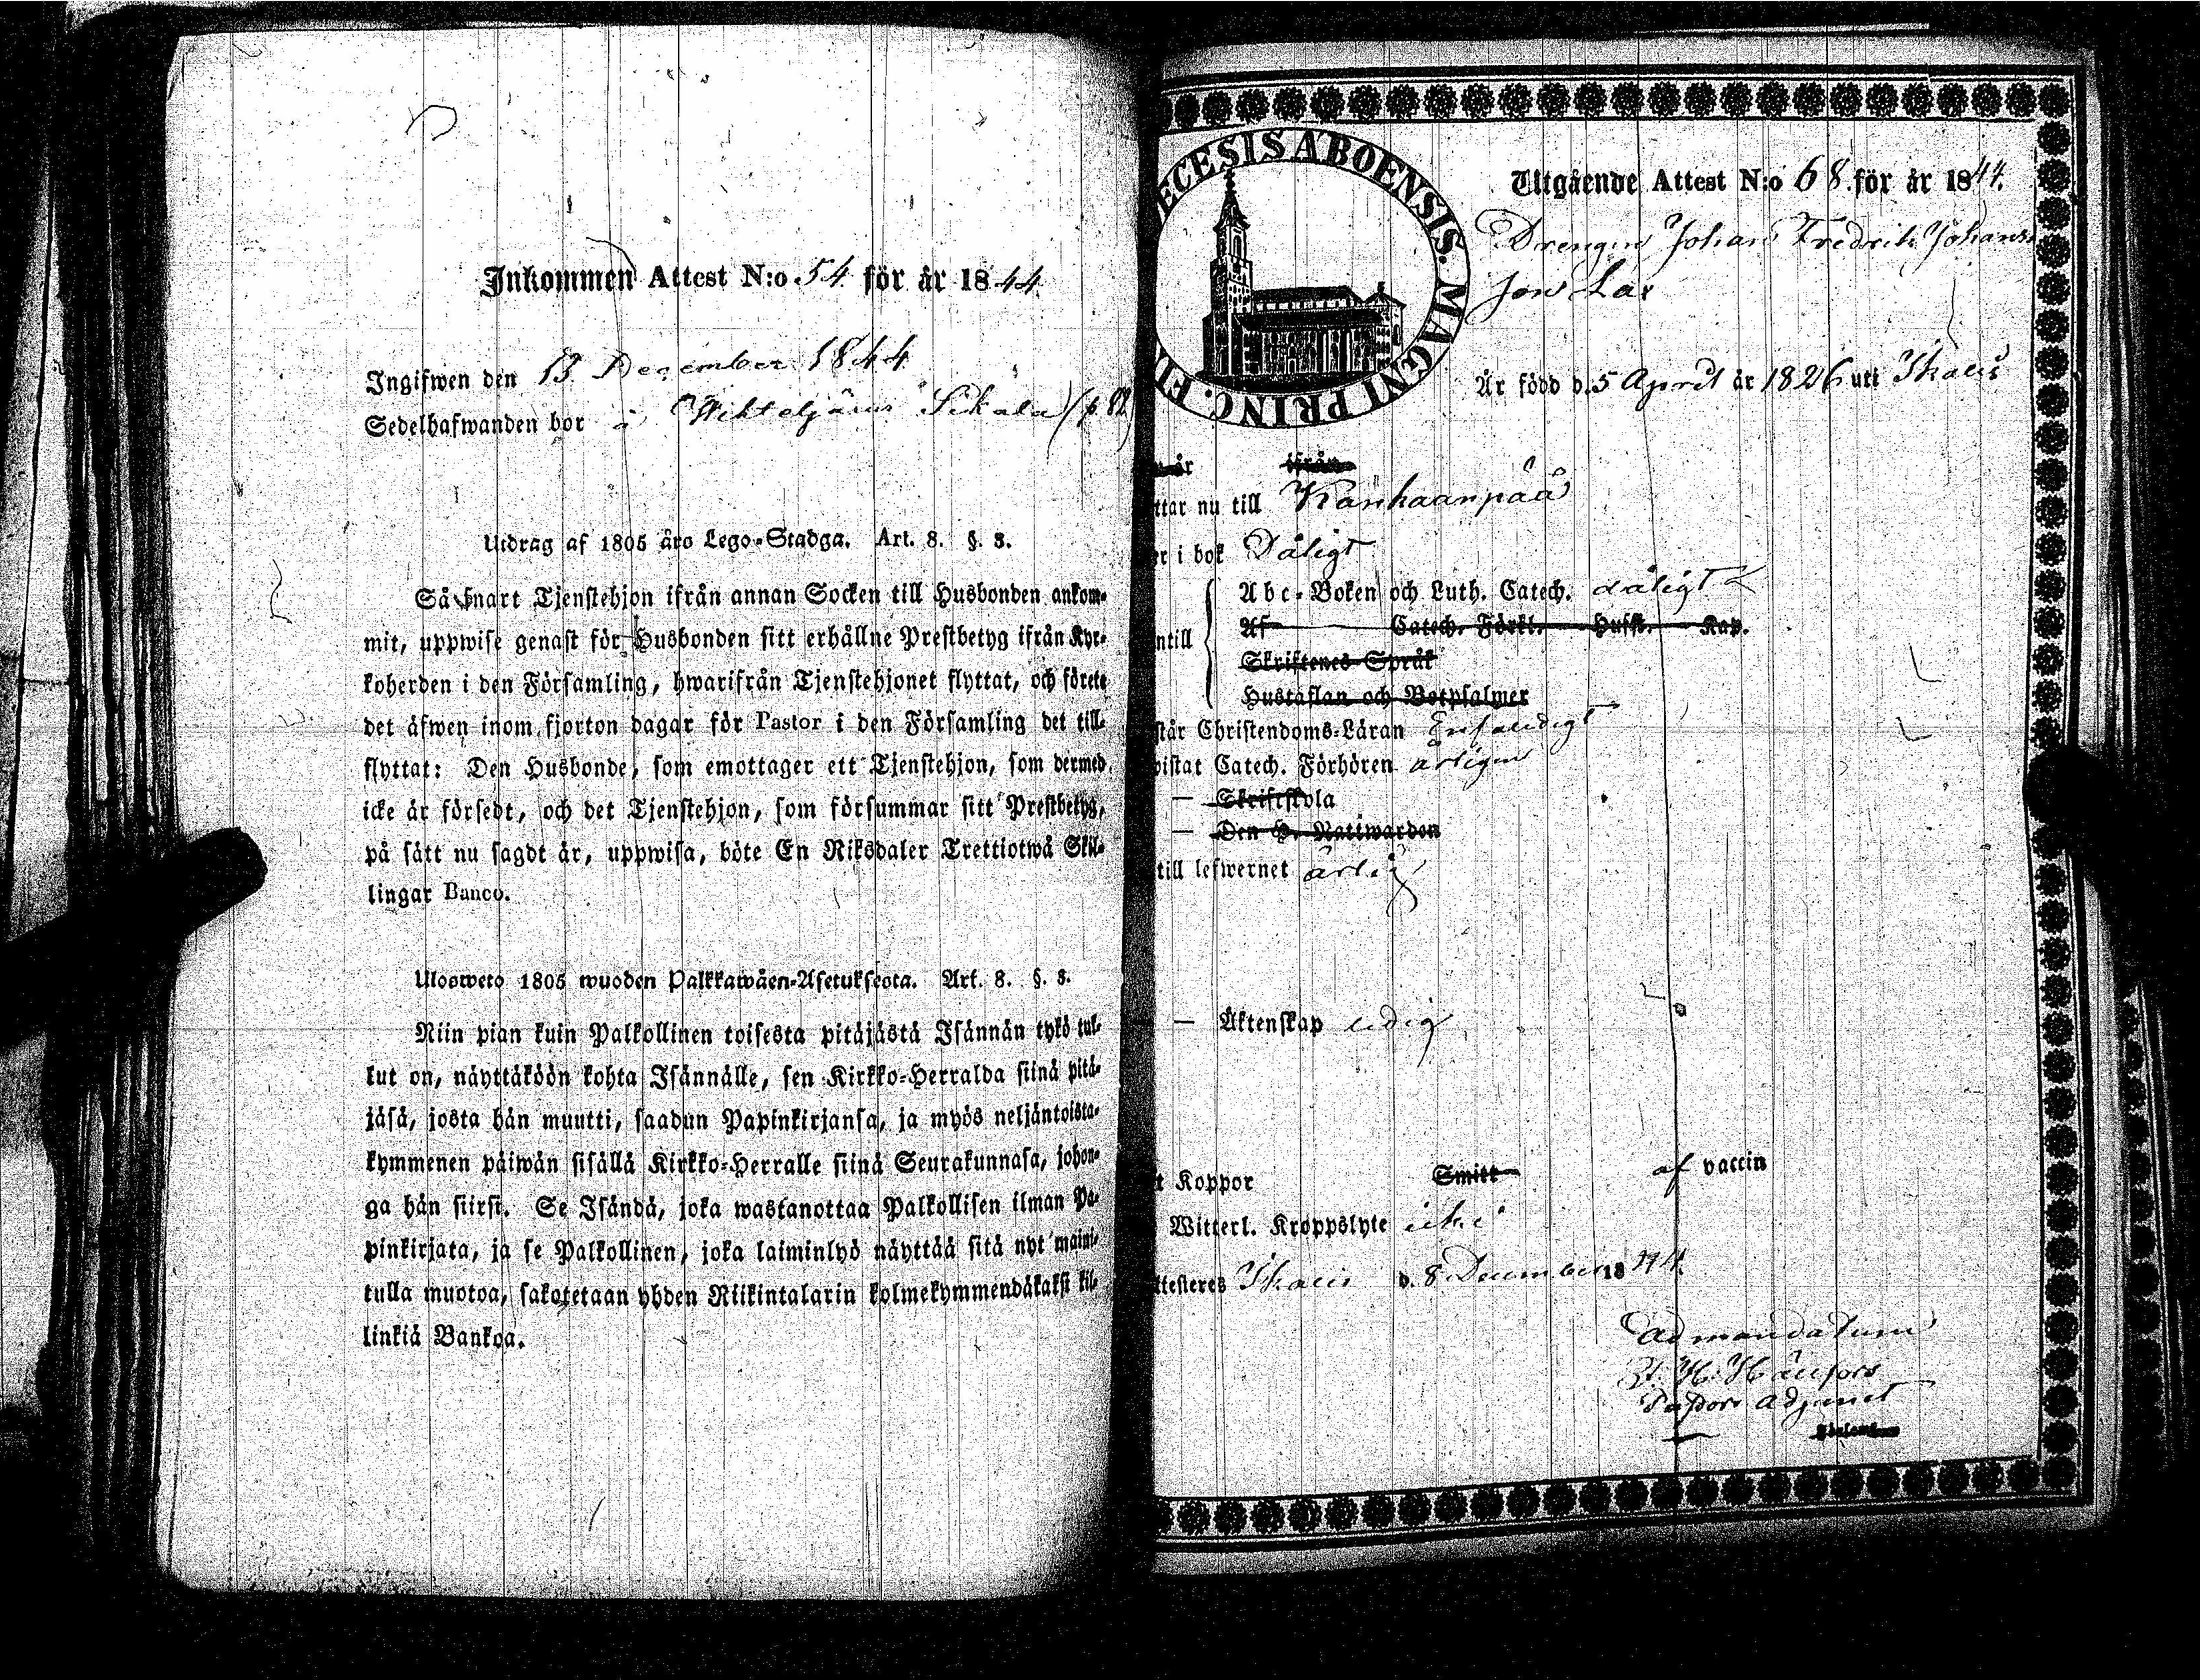 Inkommen Attest N:o 54 för år 1844.
Ingifwen den 13 December 1844
Sedelhafwanden bor å
Utdrag af 1805 års Lego-Stadga. Art. 8. §. 3.
Så snart Tjenstehjon ifrån annan Socken till Husbonden ankom-
mit, uppwise genast för Husbonden sitt erhållne Prestbetyg ifrån Kyr-
koherden i den Församling, hwarifrån Tjenstehjonet flyttat, och förete
det äfwen inom fjorton dagar för Pastor i den Församling det till-
flyttat: Den Husbonde, som emottager ett Tjenstehjon, som dermed
icke är försedt, och det Tjenstehjon, som försummar sitt Prestbetyg,
på sätt nu sagdt är, uppwisa, böte En Riksdaler Trettiotwå Skil-
lingar Banco.
Ulosweto 1805 wuoden Palkkawäen-Asetuksesta. Art. 8. §. 3.
Niin pian kuin Palkollinen toisesta pitäjästä Isännän tykö tul-
lut on, näyttäköön kohta Isännälle, sen Kirkko-Herralda siinä pitä-
jäsä, josta hän muutti, saadun Papinkirjansa, ja myös neljäntoista-
kymmenen päiwän sisällä Kirkko-Herralle siinä Seurakunnasa, johon-
ga hän siirsi. Se Isändä, joka wastanottaa Palkollisen ilman Pa-
pinkirjata, ja se Palkollinen, joka laiminlyö näyttää sitä nyt maini-
tulla muotoa, sakotetaan yhden Riikintalarin kolmekymmendäkaksi kil-
linkiä Bankoa.
ECESIS ABOENSIS. MAGNI PRINC. FI
Utgående Attest N:o 68 för år 1844.
Drengen Johan Fredrik Johans
son Lax
Är född d. 5 April år 1826 uti Ikalis
är ifrån
ttar nu till Kankaanpää
er i bok Dåligt
Abc-Boken och Luth. Catech. dåligt
Af Catech. Förkl. Husf. Kap.
ntill
Skriftenes Språk
Hustaflan och Botpsalmer
står Christendoms-Läran Enfaldigt
wistat Catech. Förhören årligen
— Skriftskola
— Den H. Nattwarden
till lefwernet ärlig
— Äktenskap ledig
t Koppor Smitt af vaccin
Witterl. Kroppslyte icke
ttesteres Ikalis d. 8 December 1844.
Ad mandatum
Pastors Adjunct